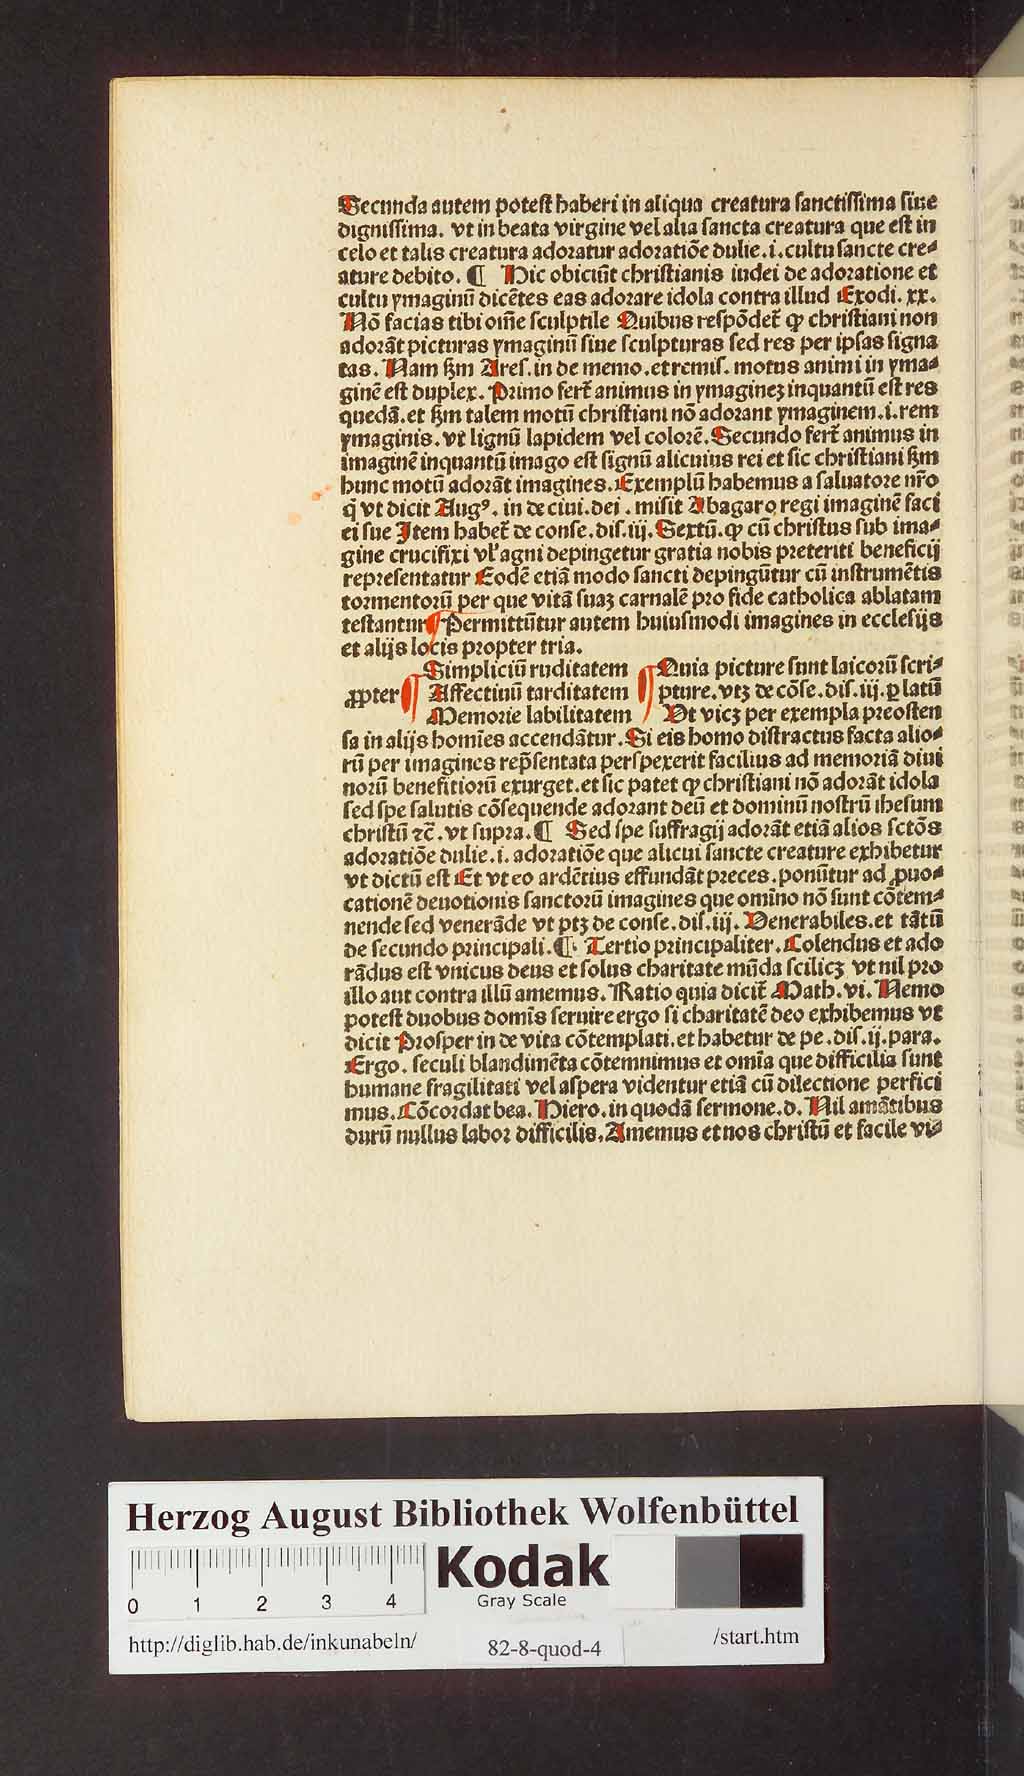 Secunda autem potest haberi in aliqua creatura sanctissima siue
dignissima. vt in beata virgine vel alia sancta creatura que est in
celo et talis creatura adoratur adoratiōe dulie.i.cultu sancte cre-
ature debito. ¶ Hic obiciūt christianis iudei de adoratione et
cultu ymaginū dicētes eas adorare idola contra illud Exodi. xx.
Nō facias tibi om̄e sculptile Quibus respōdet᷑ ꝙ christiani non
adorāt picturas ymaginū siue sculpturas sed res per ipsas signa
tas. Nam ẜm Ares. in de memo. et remiſ. motus animi in yma-
ginē est duplex. Primo fert᷑ animus in ymagineꝫ inquantū est res
quedā. et ẜm talem motū christiani nō adorant ymaginem.i.rem
ymaginis. vt lignū lapidem vel colorē. Secundo fert᷑ animus in
imaginē inquantū imago est signū alicuius rei et sic christiani ẜm
hunc motū adorāt imagines. Exemplū habemus a saluatore nr̄o
q̄ vt dicit Augꝰ. in de ciui. dei. misit Abagaro regi imaginē faci
ei sue Item habet᷑ de conse. dis. iij. Sextū. ꝙ cū christus sub ima-
gine crucifixi vl' agni depingetur gratia nobis preteriti beneficij
representatur Eodē etiā modo sancti depingūtur cū instrumētis
tormentorū per que vitā suaꝫ carnalē pro fide catholica ablatam
testantur ¶ Permittūtur autem huiusmodi imagines in ecclesijs
et alijs locis propter tria.
Simpliciū ruditatem ¶ Quia picture sunt laicorū scri-
ꝓpter ¶ Affectinū tarditatem pture. vtꝫ de cōse. dis. iij. ꝑlatū
Memorie labilitatem Vt vicꝫ per exempla preosten
sa in alijs homīes accendātur. Si eis homo distractus facta alio-
rū per imagines rep̄sentata perspexerit facilius ad memoriā diui
norū benefitiorū exurget. et sic patet ꝙ christiani nō adorāt idola
sed spe salutis cōsequende adorant deū et dominū nostrū ihesum
christū ⁊c̄. vt supra. ¶ Sed spe suffragij adorāt etiā alios sctōs
adoratiōe dulie.i. adoratiōe que alicui sancte creature exhibetur
vt dictū est Et vt eo ardētius effundāt preces. ponūtur ad ꝓuo-
cationē deuotionis sanctorū imagines que omīno nō sunt cōtem-
nende sed venerāde vt ptꝫ de conse. dis. iij. Venerabiles. et tātū
de secundo principali. ¶ Tertio principaliter. Colendus et ado
rādus est vnicus deus et solus charitate mūda scilicꝫ vt nil pro
illo aut contra illū amemus. Ratio quia dicit᷑ Math. vi. Nemo
potest duobus domīs seruire ergo si charitatē deo exhibemus vt
dicit Prosper in de vita cōtemplati. et habetur de pe. dis. ij. para.
Ergo. seculi blandimēta cōtemnimus et omīa que difficilia sunt
humane fragilitati vel aspera videntur etiā cū dilectione perfici
mus. Cōcordat bea. Hiero. in quodā sermone. d. Nil amātibus
durū nullus labor difficilis. Amemus et nos christū et facile vi-
Herzog August Bibliothek Wolfenbüttel
0 1 2 3 4
Kodak
Gray Scale
http://diglib.hab.de/inkunabeln/ 82-8-quod-4 /start.htm